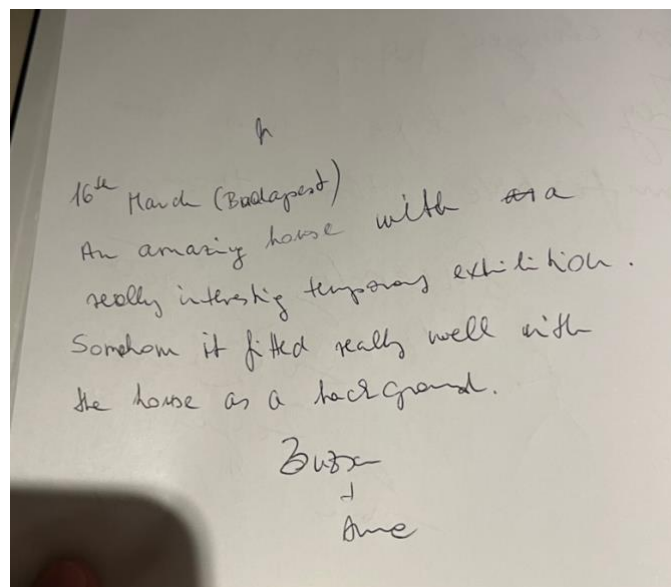 16th March (Budapest)
An amazing house with a
really interesting temporary exhibition.
Somehow it fitted really well with
the house as a background.
Zuzsa
+
Anne